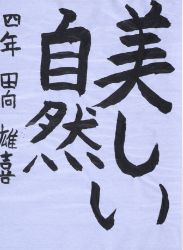 美しい
自然
四年 田尚 雄喜